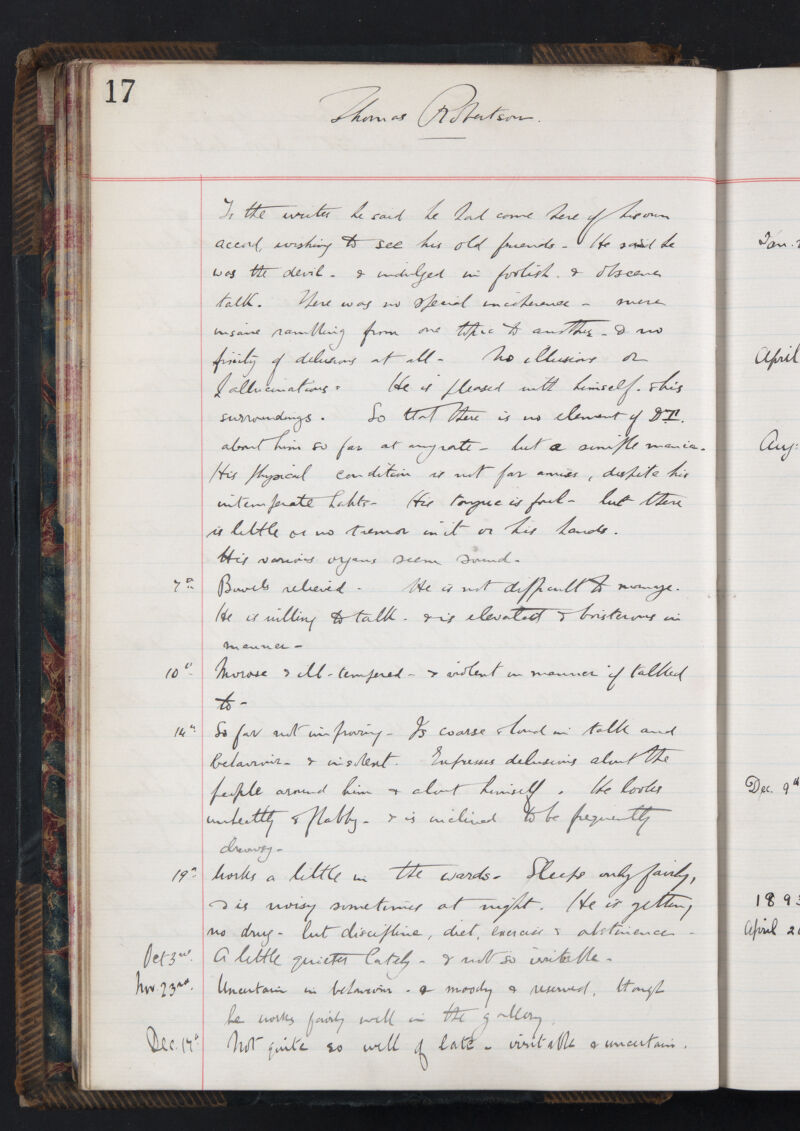 17
Thomas Robertson.
To the writer he said he had come here of his own
accord, wishing to see his old friends - He said he
was the devil - & indulged in foolish & obscene
talk. There was no special incoherence - mere
insane rambling from one topic to another - & no
fixity of delusions at all - No illusions or
hallucinations - He is pleased with himself & his
surroundings. So that there is no element of D.T.
about him so far at any rate - but a simple mania.
His physical condition is not far amiss, despite his
intemperate habits - His tongue is foul - but there
is little or no tremor in it or his hands.
His various organs seem sound.
7th Bowels relieved - He is not difficult to manage.
He is willing to talk - & is elevated & boisterous in
manner -
10th Morose & ill-tempered - & violent in manner if talked
to -
14th So far not improving - Is coarse & loud in talk and
behaviour - & insolent. Expresses delusions about the
people around him & about himself. He looks
unhealthy & flabby - & is inclined to be frequently
drowsy -
19th Works a little in the wards - Sleeps only fairly,
& is noisy sometimes at night. He is getting
no drug - but discipline, diet, exercise & abstinence -
Oct 3rd. A little quieter lately - & not so irritable -
Nov. 23rd. Uncertain in behaviour - & moody & reserved, though
he works fairly well in the gallery.
Dec. 17th Not quite so well of late - irritable & uncertain.
Jan.
April
Aug:
Dec. 9th
189
April 2